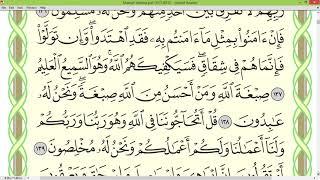 رَبِّهِمْ لَا نُفَرِّقُ بَيْنَ أَحَدٍ مِّنْهُمْ وَنَحْنُ لَهُۥ مُسْلِمُونَ
فَإِنْ ءَامَنُوا۟ بِمِثْلِ مَآ ءَامَنتُم بِهِۦ فَقَدِ ٱهْتَدَوا۟ۖ وَّإِن تَوَلَّوْا۟
فَإِنَّمَا هُمْ فِى شِقَاقٍۖ فَسَيَكْفِيكَهُمُ ٱللَّهُۚ وَهُوَ ٱلسَّمِيعُ ٱلْعَلِيمُ
١٣٧ صِبْغَةَ ٱللَّهِۖ وَمَنْ أَحْسَنُ مِنَ ٱللَّهِ صِبْغَةًۖ وَنَحْنُ لَهُۥ
عَـٰبِدُونَ ١٣٨ قُلْ أَتُحَآجُّونَنَا فِى ٱللَّهِ وَهُوَ رَبُّنَا وَرَبُّكُمْ
وَلَنَآ أَعْمَـٰلُنَا وَلَكُمْ أَعْمَـٰلُكُمْ وَنَحْنُ لَهُۥ مُخْلِصُونَ ١٣٩